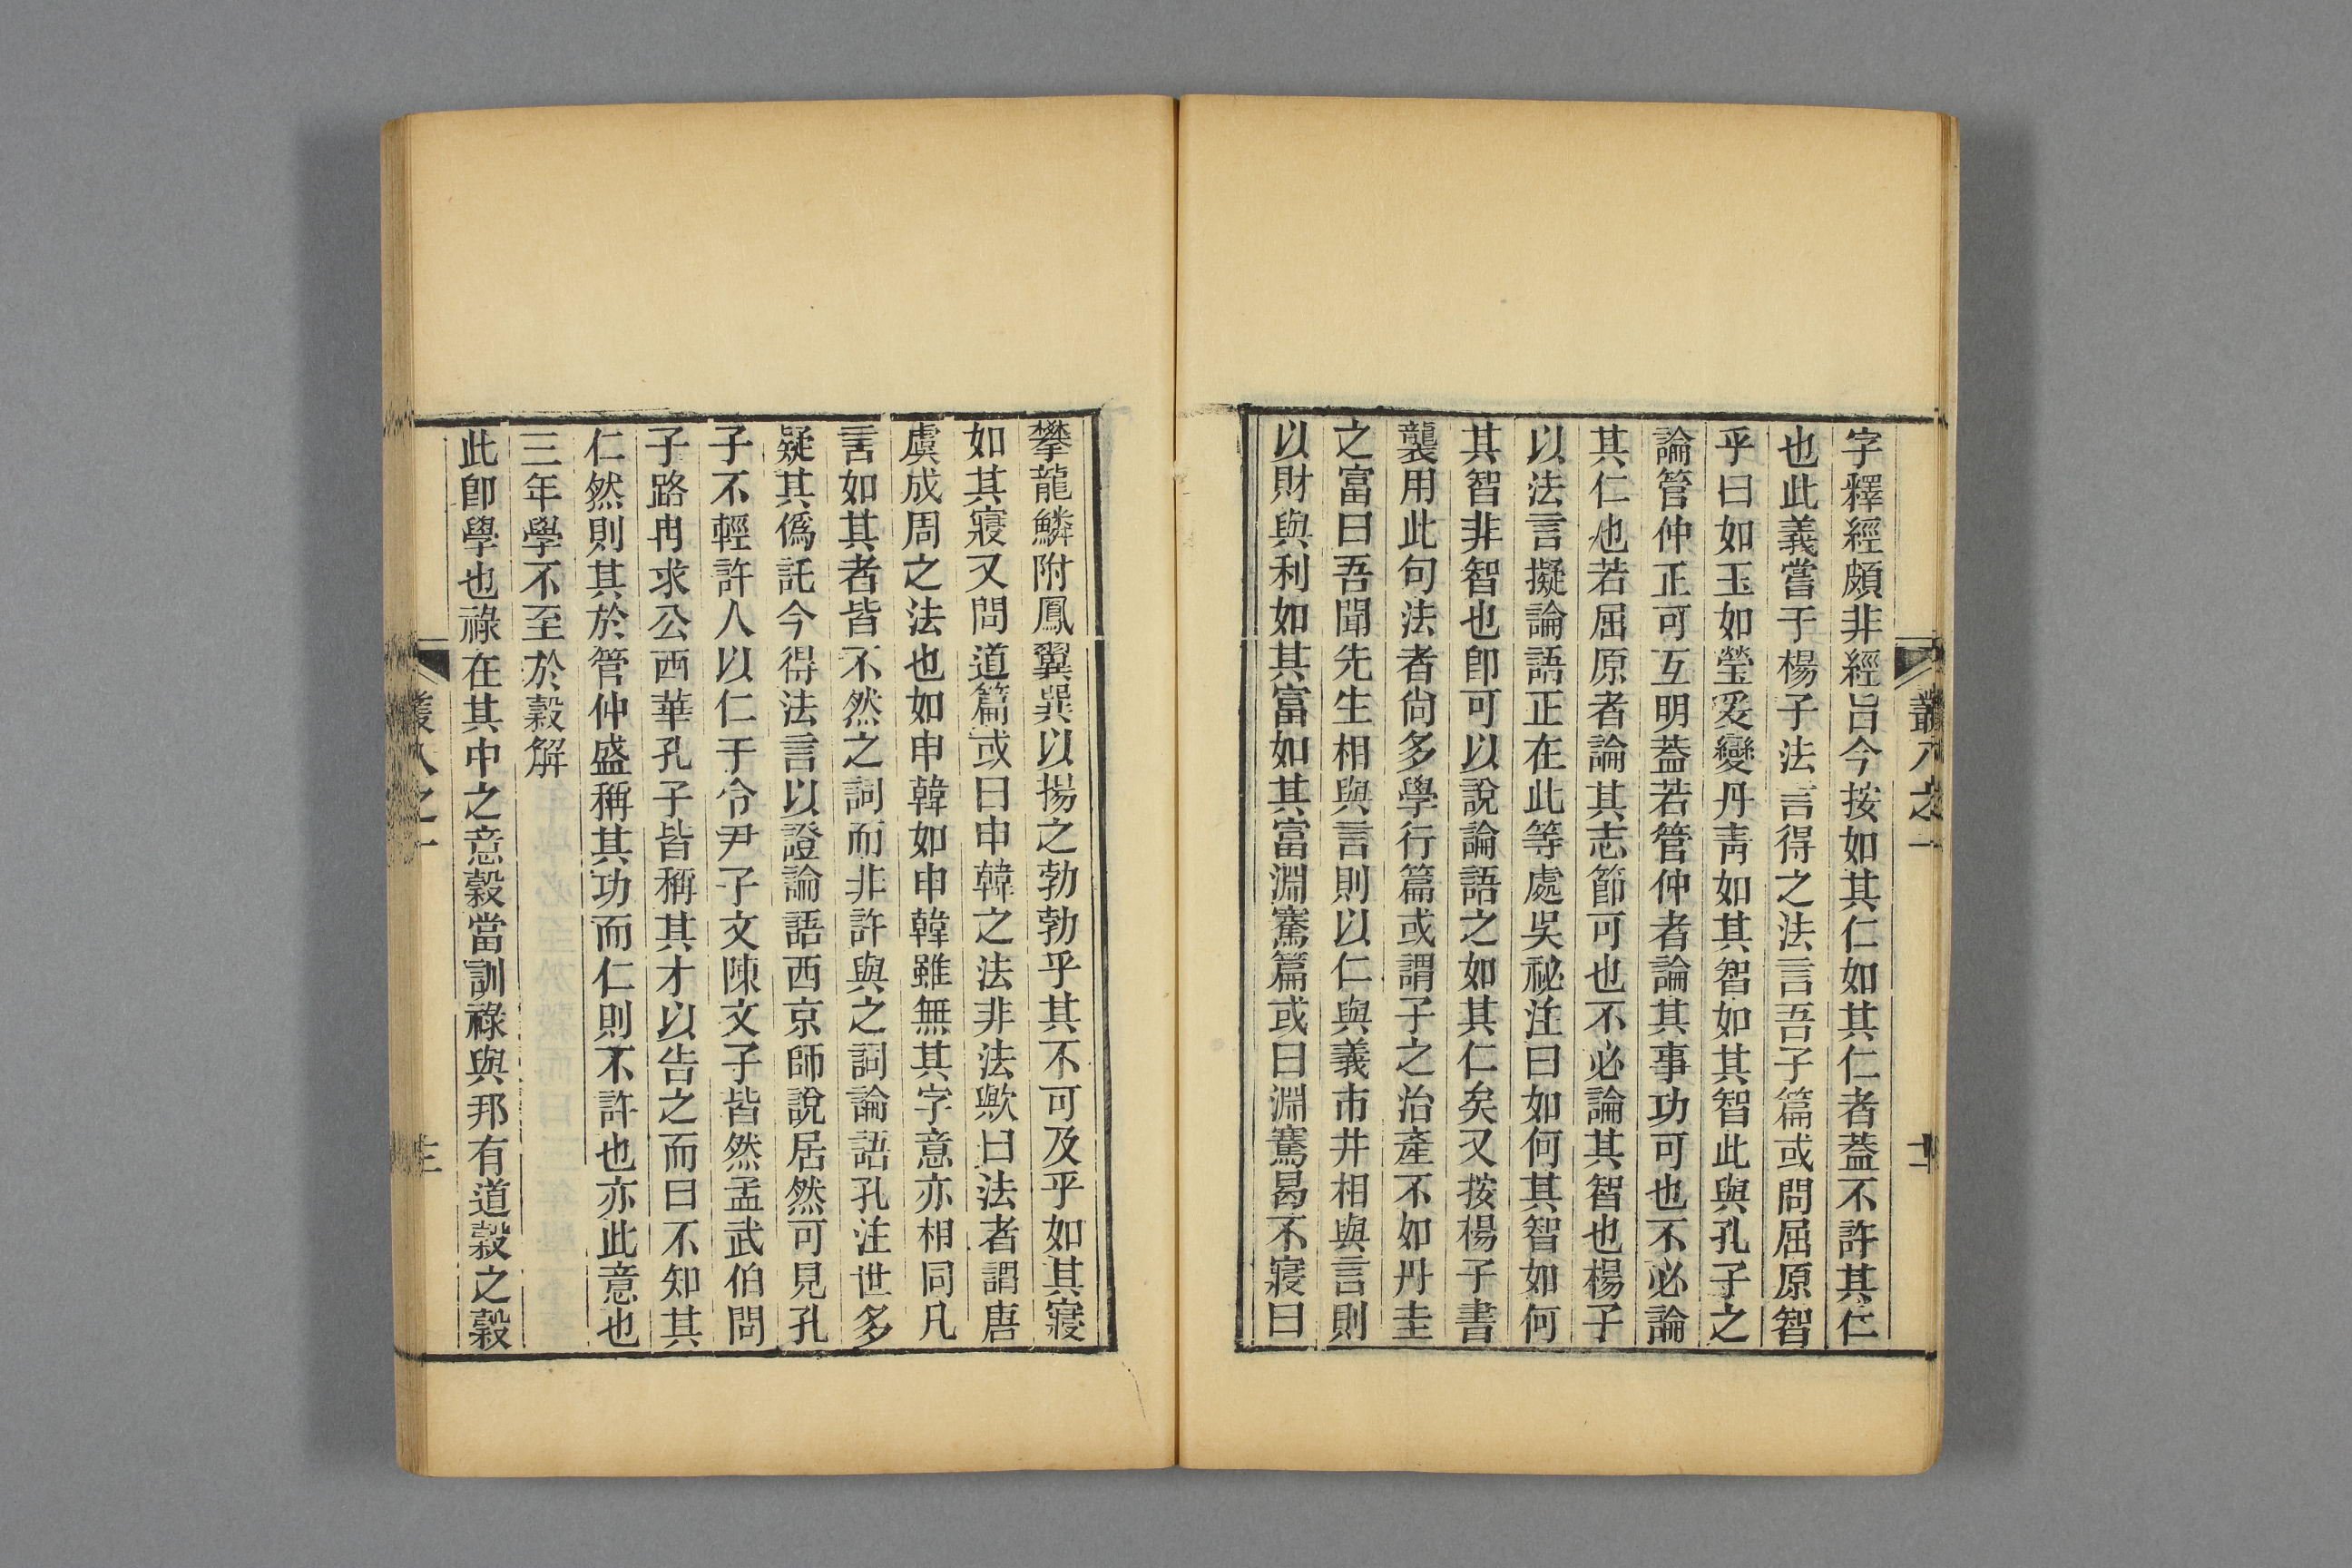 叢八之一
字釋經頗非經旨今按如其仁如其仁者葢不許其仁
也此義嘗于楊子法言得之法言吾子篇或問屈原智
乎曰如玉如瑩爰變丹靑如其智如其智此與孔子之
論管仲正可互明葢若管仲者論其事功可也不必論
其仁也若屈原者論其志節可也不必論其智也楊子
以法言擬論語正在此等處吳祕注曰如何其智如何
其智非智也卽可以說論語之如其仁矣又按楊子書
襲用此句法者尙多學行篇或謂子之治產不如丹圭
之富曰吾聞先生相與言則以仁與義市井相與言則
以財與利如其富如其富淵騫篇或曰淵騫曷不寢曰
攀龍鱗附鳳翼巽以揚之勃勃乎其不可及乎如其寢
如其寢又問道篇或曰申韓之法非法歟曰法者謂唐
虞成周之法也如申韓如申韓雖無其字意亦相同凡
言如其者皆不然之詞而非許與之詞論語孔注世多
疑其僞託今得法言以證論語西京師說居然可見孔
子不輕許人以仁于令尹子文陳文子皆然孟武伯問
子路冉求公西華孔子皆稱其才以告之而曰不知其
仁然則其於管仲盛稱其功而仁則不許也亦此意也
三年學不至於穀解
此卽學也祿在其中之意穀當訓祿與邦有道穀之穀